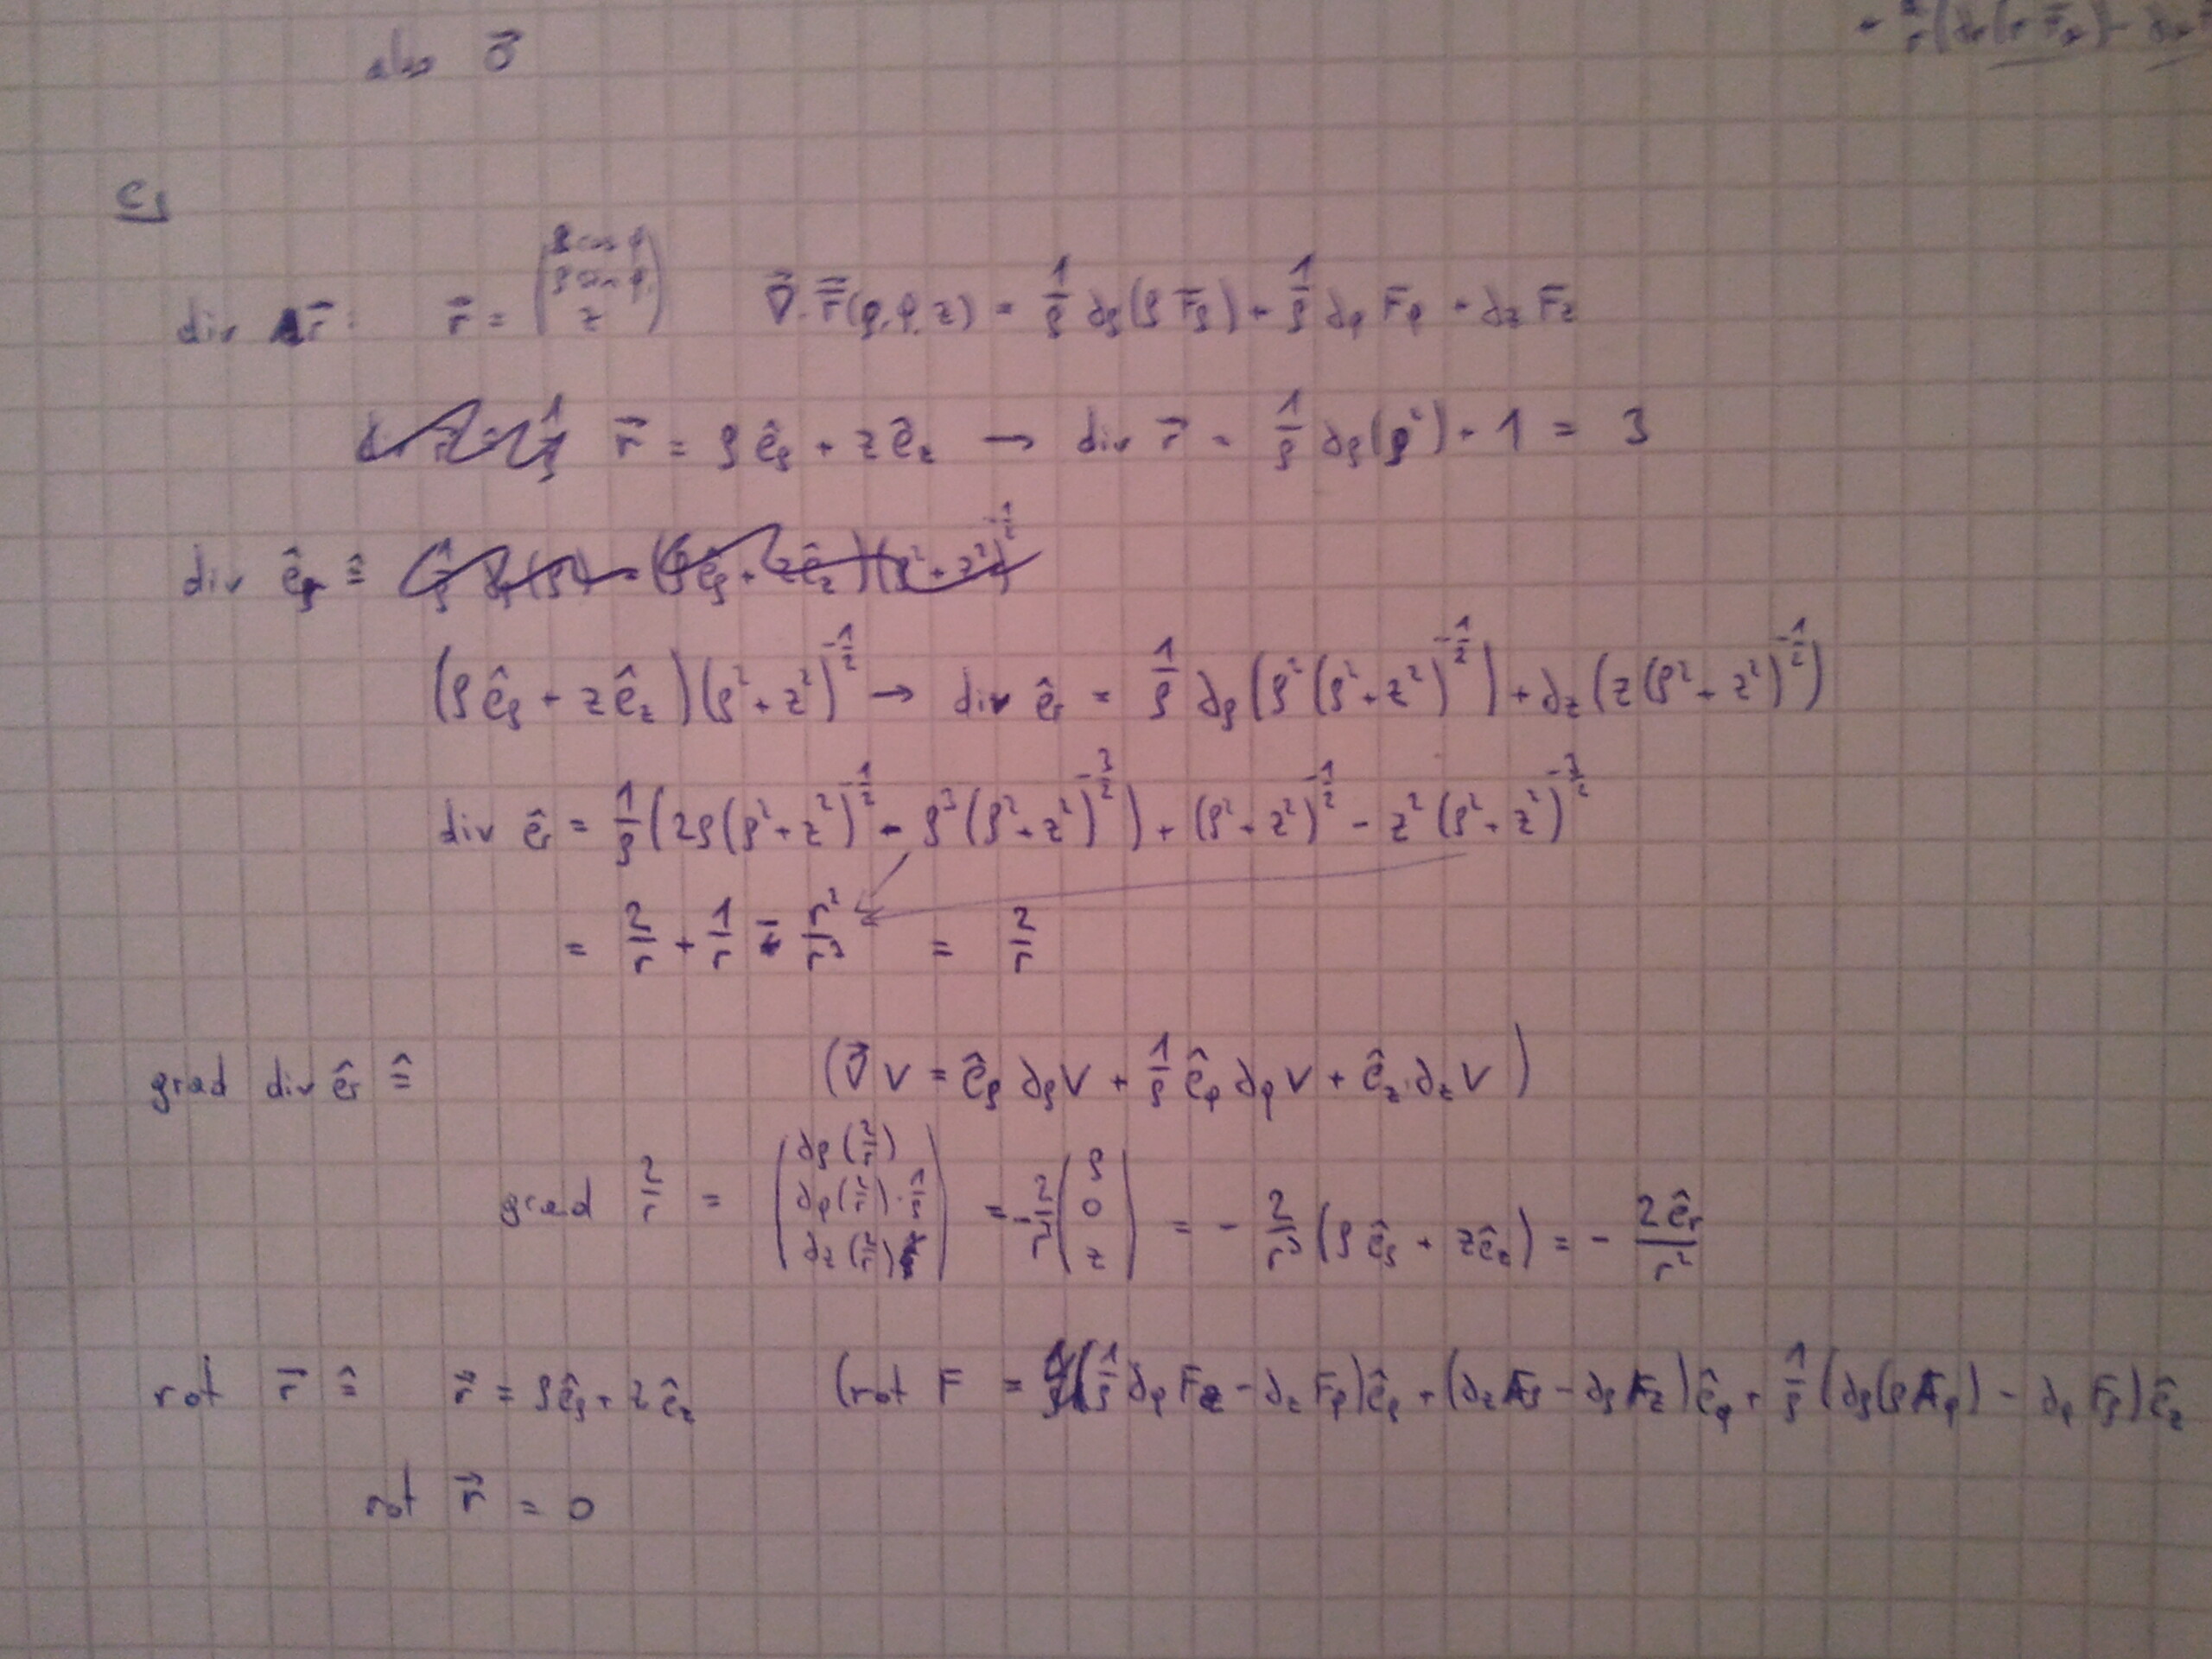 also \vec{0}
+ 1/r (∂r(r F
c)
div \vec{r}: \vec{r} = (ρ cos φ, ρ sin φ, z) \vec{∇}·\vec{F}(ρ,φ,z) = 1/ρ ∂ρ(ρ Fρ) + 1/ρ ∂φ Fφ + ∂z Fz
\vec{r} = ρ êρ + z êz → div \vec{r} = 1/ρ ∂ρ(ρ²) + 1 = 3
div êr ≙ (ρ êρ + z êz)(ρ² + z²)^{-1/2}
(ρ êρ + z êz)(ρ² + z²)^{-1/2} → div êr = 1/ρ ∂ρ(ρ²(ρ² + z²)^{-1/2}) + ∂z(z(ρ² + z²)^{-1/2})
div êr = 1/ρ (2ρ(ρ² + z²)^{-1/2} - ρ³(ρ² + z²)^{-3/2}) + (ρ² + z²)^{-1/2} - z²(ρ² + z²)^{-3/2}
= 2/r + 1/r - r²/r³ = 2/r
grad div êr ≙ (\vec{∇}V = êρ ∂ρV + 1/ρ êφ ∂φV + êz ∂zV)
grad 2/r = (∂ρ(2/r), ∂φ(2/r)·1/ρ, ∂z(2/r)) = -2/r³ (ρ, 0, z) = - 2/r³ (ρ êρ + z êz) = - 2êr/r²
rot \vec{r} ≙ \vec{r} = ρ êρ + z êz (rot F = (1/ρ ∂φ Fz - ∂z Fφ) êρ + (∂z Fρ - ∂ρ Fz) êφ + 1/ρ (∂ρ(ρ Fφ) - ∂φ Fρ) êz
rot \vec{r} = 0